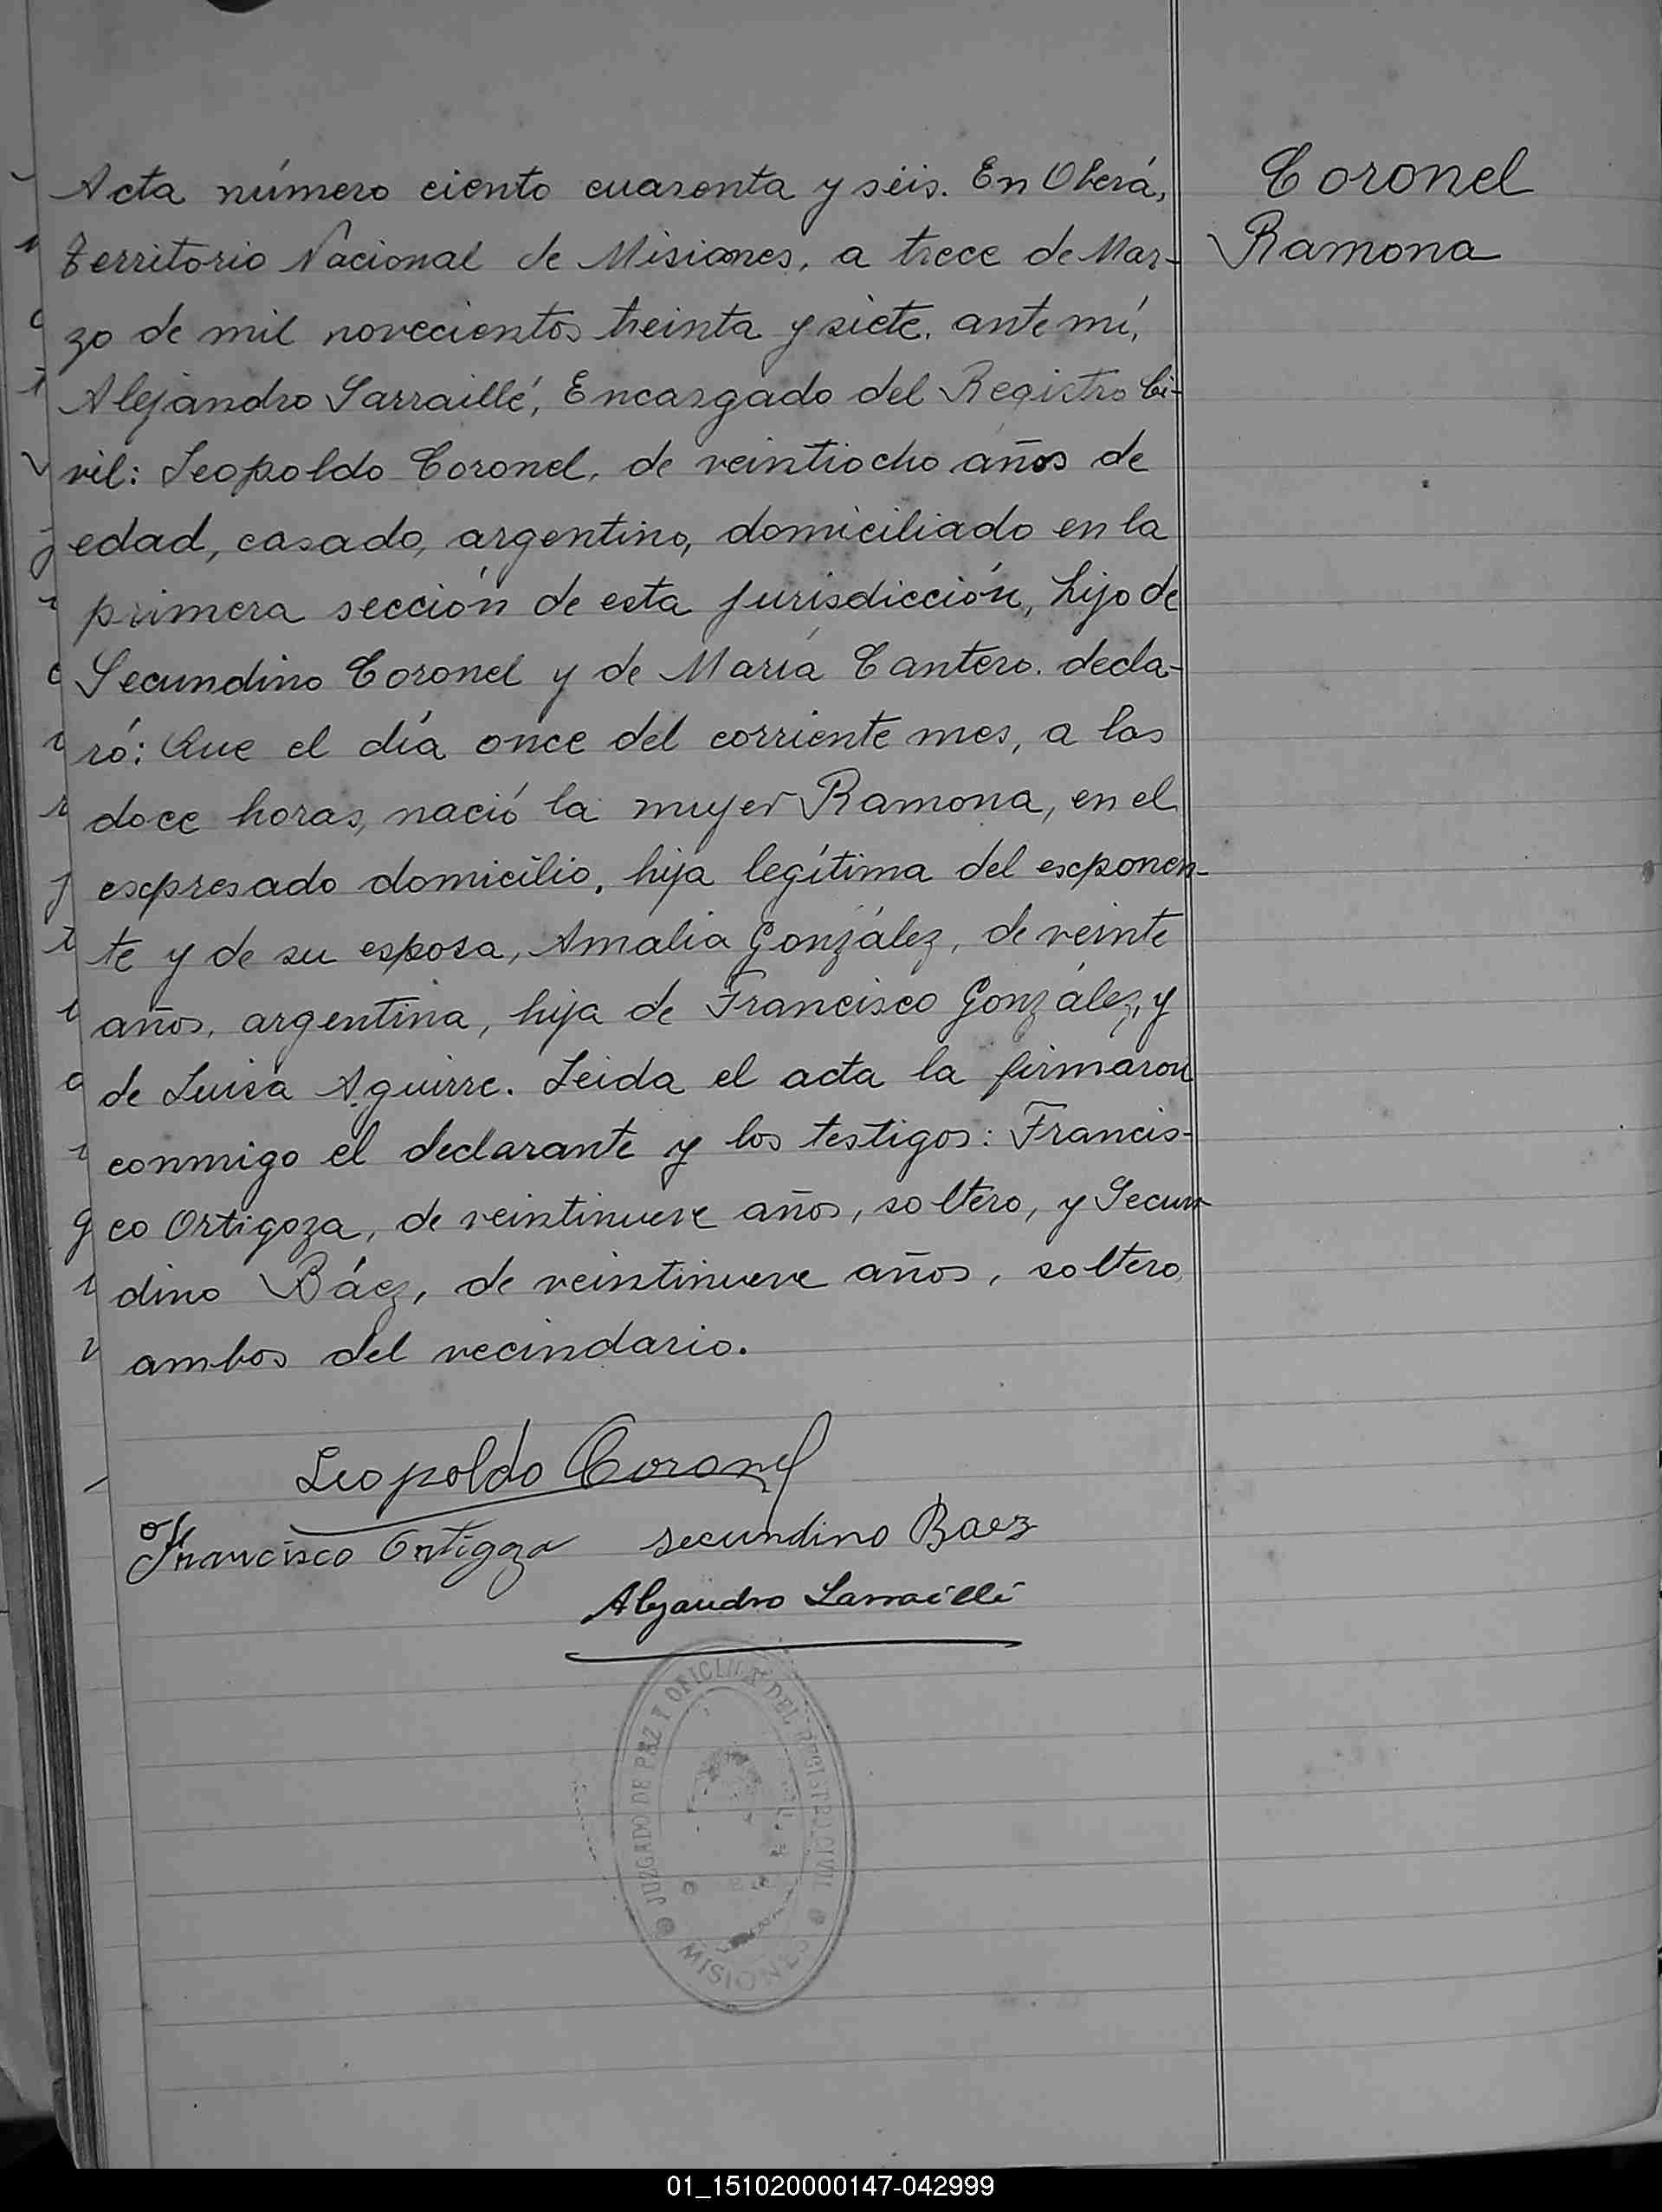 Acta número ciento cuarenta y seis. En Oberá,
Territorio Nacional de Misiones, a trece de Mar-
zo de mil novecientos treinta y siete, ante mí,
Alejandro Sarraillé, Encargado del Registro Ci-
vil: Leopoldo Coronel, de veintiocho años de
edad, casado, argentino, domiciliado en la
primera sección de esta jurisdicción, hijo de
Secundino Coronel y de María Cantero. decla-
ró: Que el día once del corriente mes, a las
doce horas, nació la mujer Ramona, en el
expresado domicilio, hija legítima del exponen-
te y de su esposa, Amalia González, de veinte
años, argentina, hija de Francisco González, y
de Luisa Aguirre. Leida el acta la firmaron
conmigo el declarante y los testigos: Francis-
co Ortigoza, de veintinueve años, soltero, y Secun-
dino Báez, de veintinueve años, soltero
ambos del vecindario.
Coronel
Ramona
Leopoldo Coronel
Francisco Ortigoza secundino Baez
Alejandro Sarraillé
JUZGADO DE PAZ Y OFICINA DEL REGISTRO CIVIL
MISIONES
01_151020000147-042999